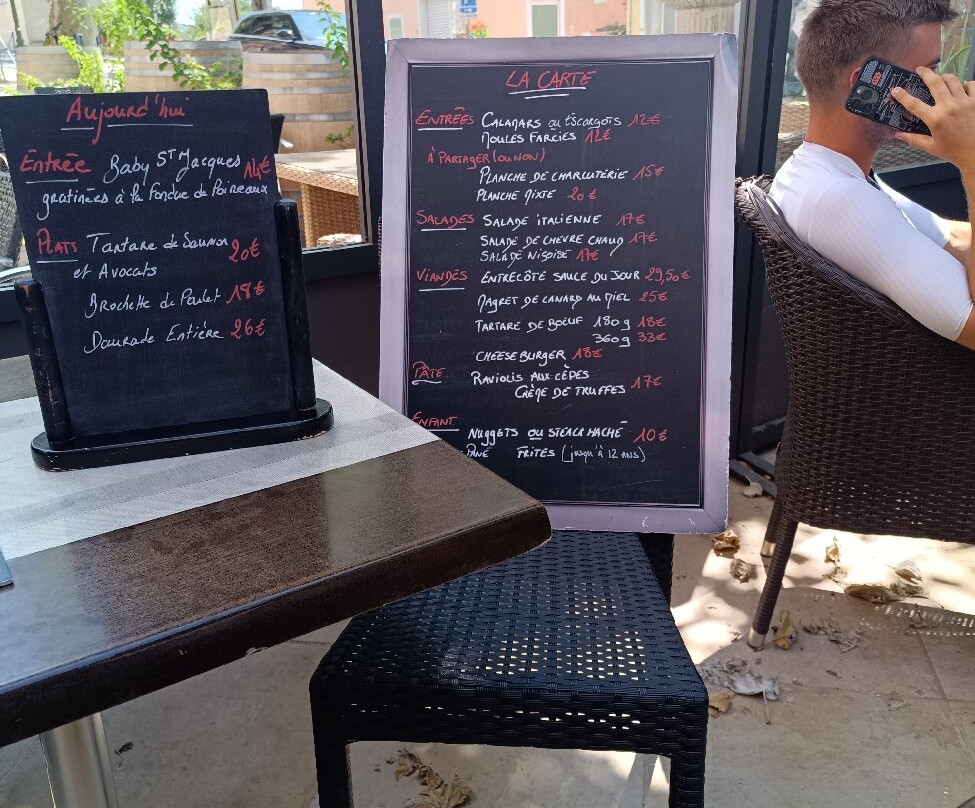 Aujourd'hui
Entrée Baby St Jacques 14€
gratinées à la Fondue de Poireaux
Plats Tartare de Saumon 20€
et Avocats
Brochette de Poulet 18€
Daurade Entière 26€
LA CARTE
ENTRÉES CALAMARS ou ESCARGOTS 12€
MOULES FARCIES 12€
À PARTAGER (ou NON)
PLANCHE DE CHARCUTERIE 15€
PLANCHE MIXTE 20€
SALADES SALADE ITALIENNE 17€
SALADE DE CHEVRE CHAUD 17€
SALADE NIÇOISE 17€
VIANDES ENTRECÔTE SAUCE DU JOUR 29,50€
MAGRET DE CANARD AU MIEL 25€
TARTARE DE BOEUF 180g 18€
360g 33€
CHEESEBURGER 18€
PÂTE RAVIOLIS AUX CÈPES
CRÈME DE TRUFFES 17€
ENFANT
NUGGETS OU STEACK HACHÉ 10€
PANÉ FRITES (jusqu'à 12 ANS)